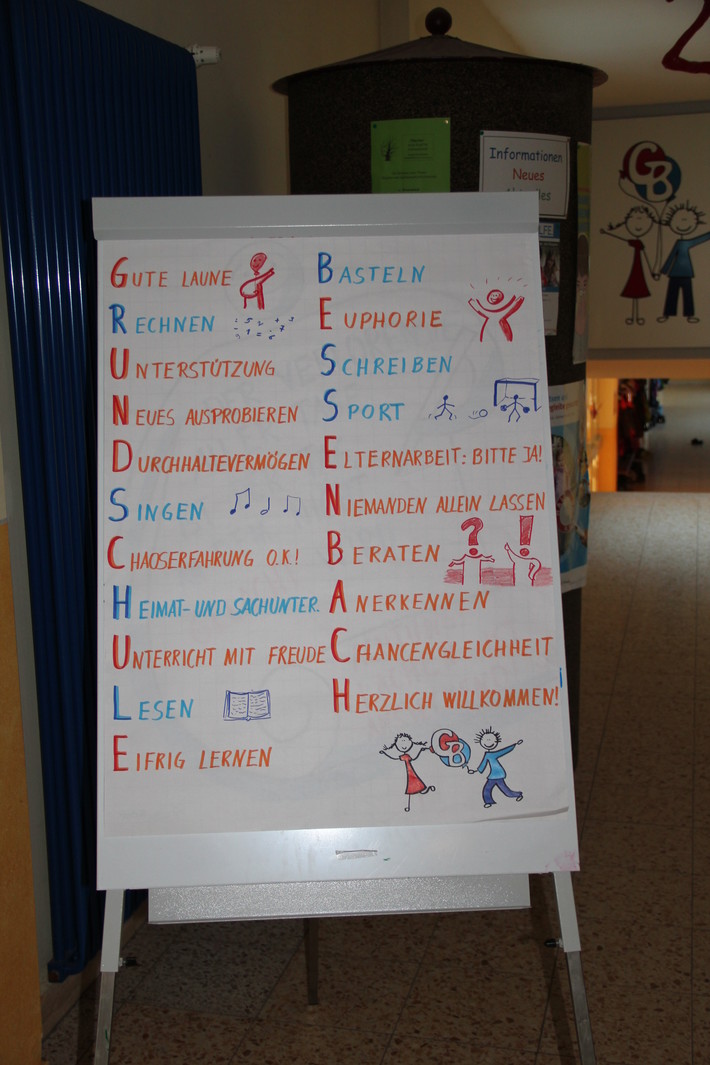 GUTE LAUNE
RECHNEN
UNTERSTÜTZUNG
NEUES AUSPROBIEREN
DURCHHALTEVERMÖGEN
SINGEN
CHAOSERFAHRUNG O.K.!
HEIMAT- UND SACHUNTER.
UNTERRICHT MIT FREUDE
LESEN
EIFRIG LERNEN
BASTELN
EUPHORIE
SCHREIBEN
SPORT
ELTERNARBEIT: BITTE JA!
NIEMANDEN ALLEIN LASSEN
BERATEN
? !
ANERKENNEN
CHANCENGLEICHHEIT
HERZLICH WILLKOMMEN!
GB
Informationen
Neues
GB